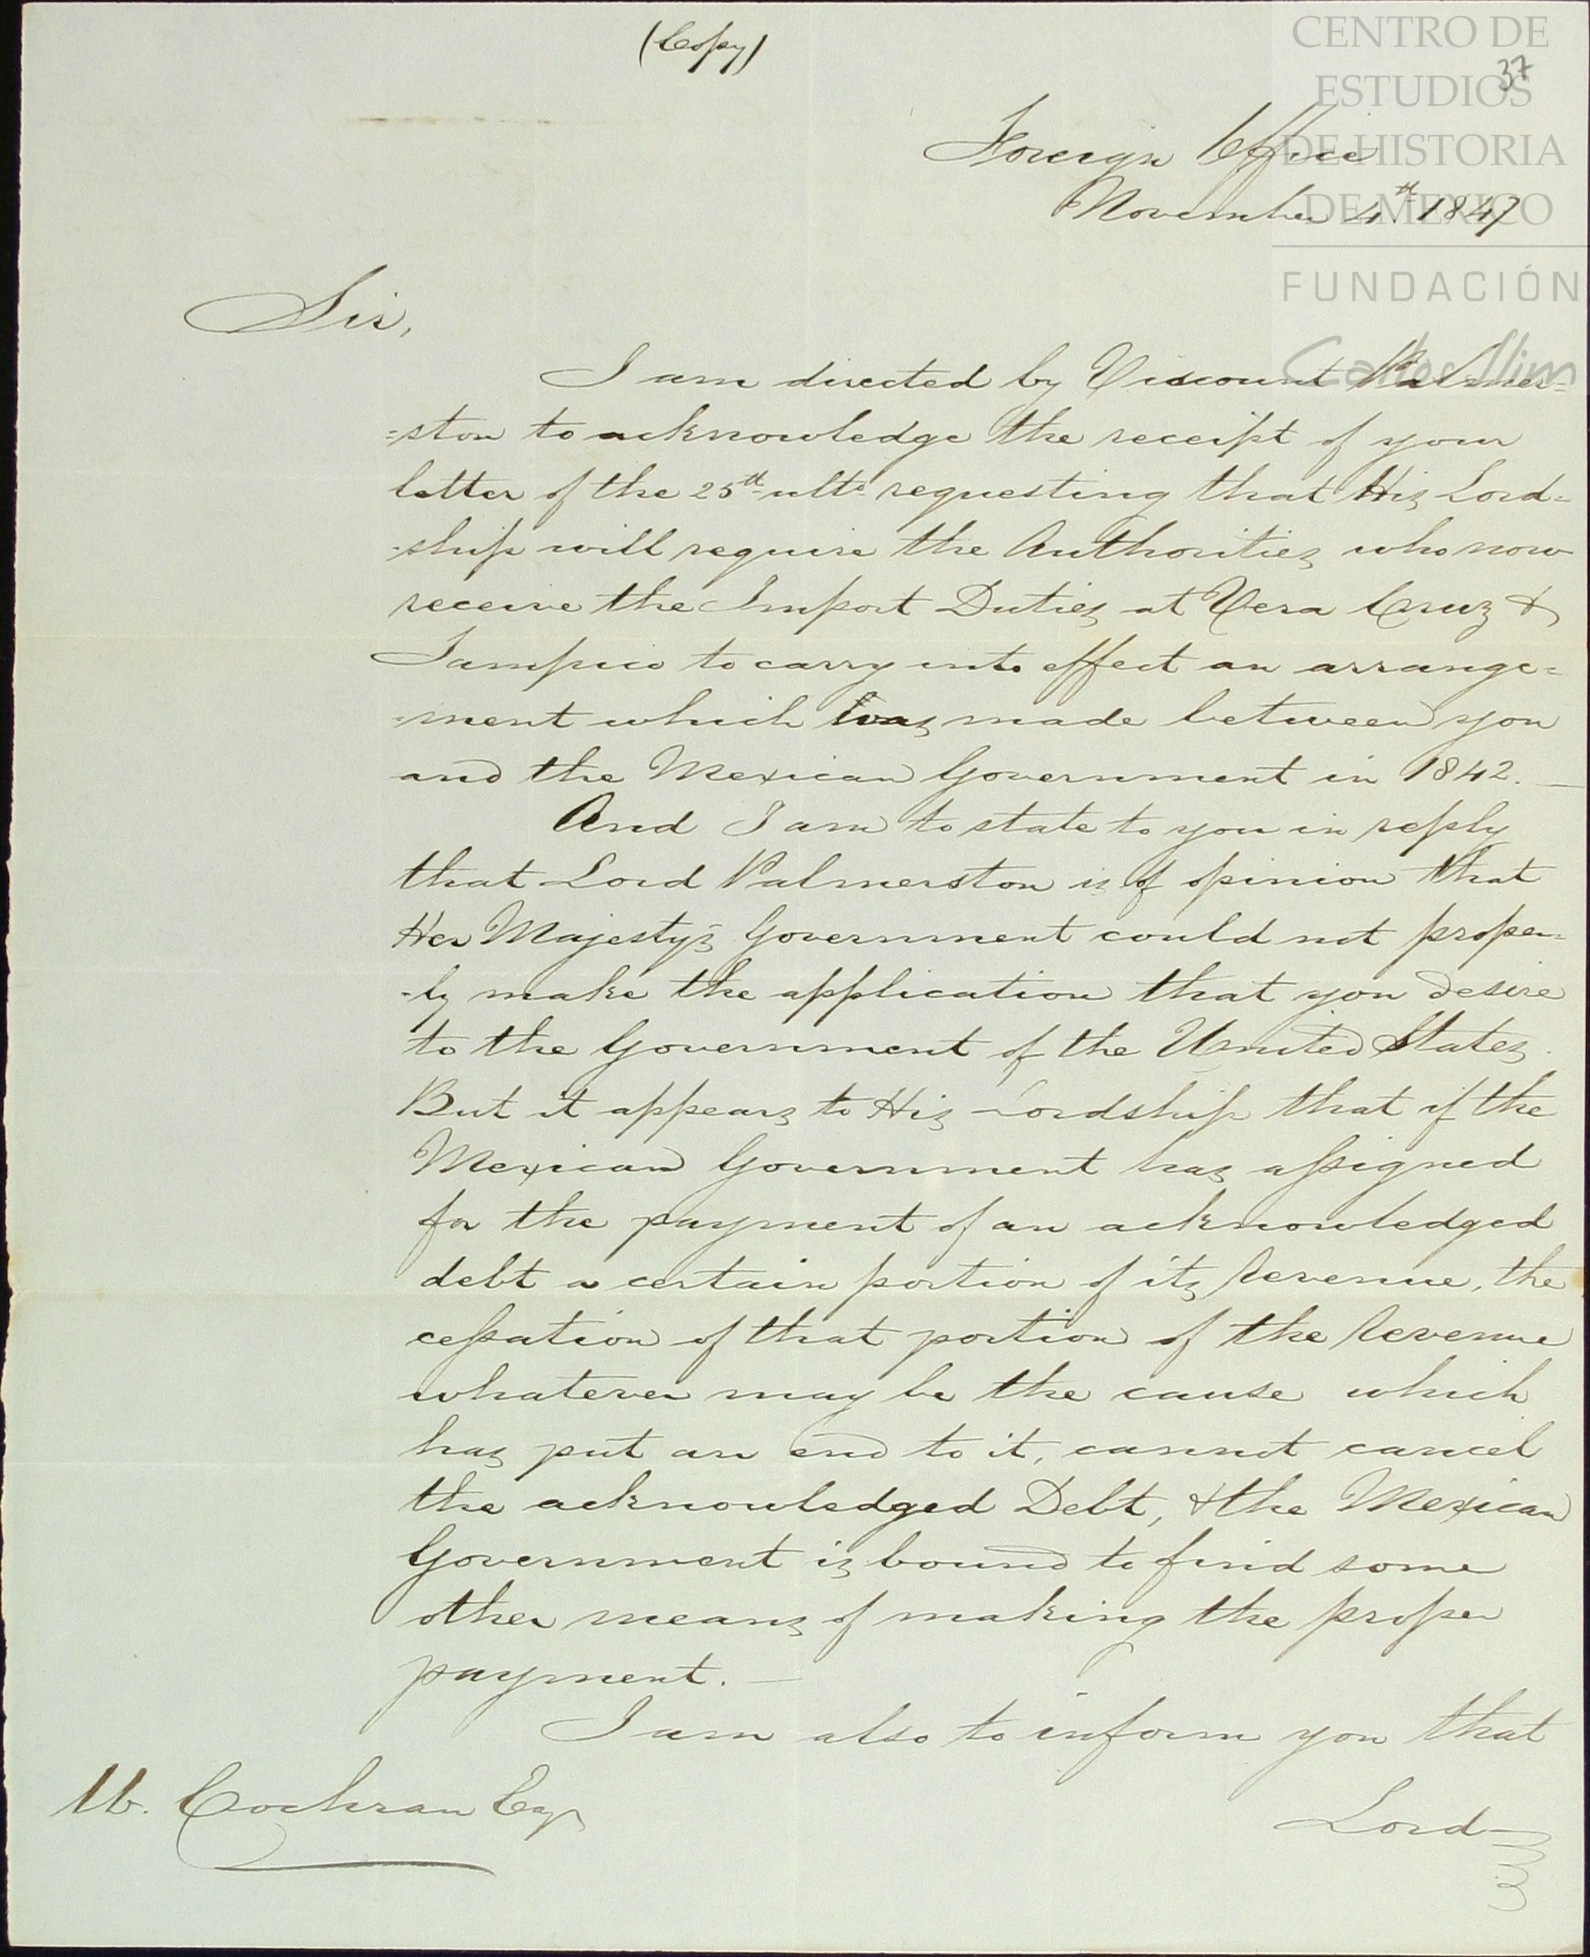 (Copy)
CENTRO DE
ESTUDIOS
DE HISTORIA
DE MEXICO
FUNDACIÓN
Carlos Slim
37
Foreign Office
November 4th 1847
Sir,
I am directed by Viscount Palmer=
=ston to acknowledge the receipt of your
letter of the 25th ulto requesting that His Lord=
-ship will require the Authorities who now
receive the Import Duties at Vera Cruz &
Tampico to carry into effect an arrange=
=ment which was made between you
and the Mexican Government in 1842. —
And I am to state to you in reply
that Lord Palmerston is of opinion that
Her Majesty's Government could not proper=
-ly make the application that you desire
to the Government of the United States.
But it appears to His Lordship that if the
Mexican Government has assigned
for the payment of an acknowledged
debt a certain portion of its Revenue, the
cessation of that portion of the Revenue
whatever may be the cause which
has put an end to it, cannot cancel
the acknowledged Debt, & the Mexican
Government is bound to find some
other means of making the proper
payment. —
I am also to inform you that
Cochran Esqr
Lord